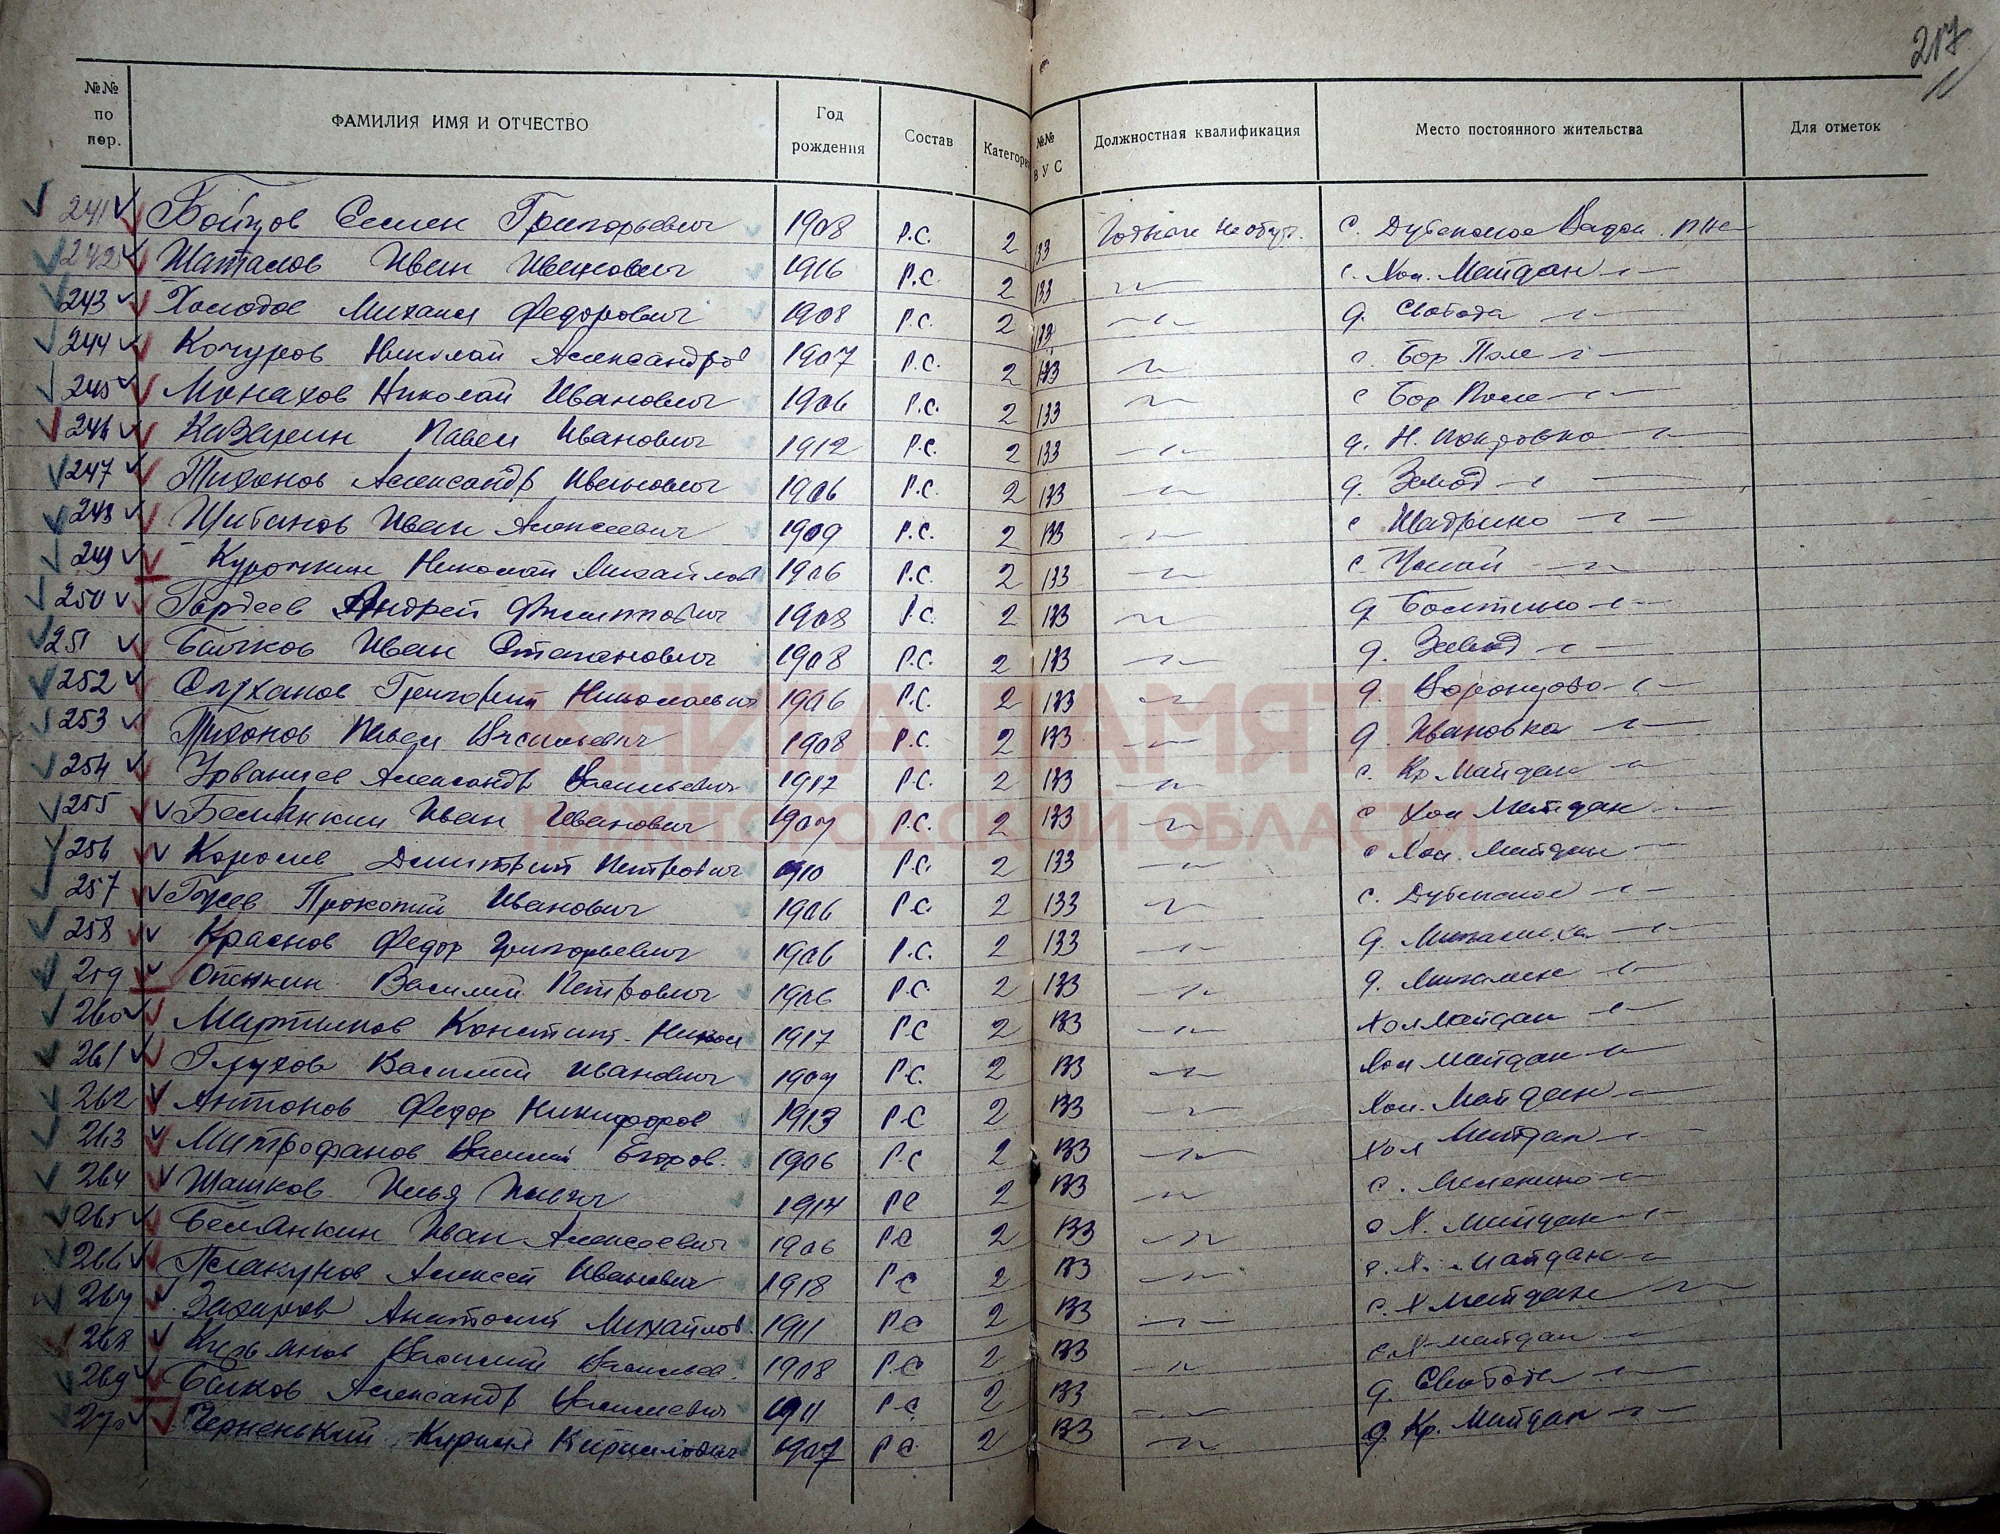 217
№№ по пор. ФАМИЛИЯ ИМЯ И ОТЧЕСТВО Год рождения Состав Категория №№ ВУС Должностная квалификация Место постоянного жительства Для отметок
241 Бойцов Семен Григорьевич 1908 Р.С. 2 133 с. Дубенское Вадск. р-не
242 Шаталов Иван Иванович 1916 Р.С. 2 133 с. Хол. Майдан
243 Холодов Михаил Федорович 1908 Р.С. 2 133 д. Свобода
244 Кочуров Николай Александров 1907 Р.С. 2 133 Бор Поле
245 Монахов Николай Иванович 1906 Р.С. 2 133 с Бор Поле
246 Казарин Павел Иванович 1912 Р.С. 2 133 д. Н. Покровка
247 Тихонов Александр Иванович 1906 Р.С. 2 133 д. Завод
248 Иван Алексеевич 1909 Р.С. 2 133 с
249 Курочкин Николай Михайлов 1906 Р.С. 2 133 с
250 Гордеев Андрей Филиппович 1908 Р.С. 2 133 д
251 Бочков Иван Степанович 1908 Р.С. 2 133 д. Завод
252 Григорий Николаевич 1906 Р.С. 2 133 д.
253 Тихонов Павел Васильевич 1908 Р.С. 2 133 д. Ивановка
254 Урванцев Александр Васильевич 1917 Р.С. 2 133 с. Кр Майдан
255 Белянкин Иван Иванович 1907 Р.С. 2 133 с Хол Майдан
256 Королев Дмитрий Петрович 1910 Р.С. 2 133 с Хол. Майдан
257 Гусев Прокопий Иванович 1906 Р.С. 2 133 с. Дубенское
258 Краснов Федор Григорьевич 1906 Р.С. 2 133 д.
259 Опенкин Василий Петрович 1906 Р.С. 2 133 д.
260 Мартынов Констант. Никол 1917 Р.С 2 133 Хол Майдан
261 Глухов Василий Иванович 1907 Р.С. 2 133 Хол Майдан
262 Антонов Федор Никифоров 1913 Р.С 2 133 Хол. Майдан
263 Митрофанов Василий Егоров. 1906 Р.С 2 133 Хол Майдан
264 Шашков Илья 1914 РС 2 133 с.
265 Белянкин Иван Алексеевич 1906 РС 2 133 с Х. Майдан
266 Плакунов Алексей Иванович 1918 РС 2 133 с. Х. Майдан
267 Захаров Анатолий Михайлов. 1911 РС 2 133 с. Х Майдан
268 Василий Васильев. 1908 РС 2 133 с. Х Майдан
269 Александр Васильевич 1911 РС 2 133 д. Свобода
270 Черненький Кирилл Кириллович 1907 РС 2 133 д. Кр. Майдан
КНИГА ПАМЯТИ
НИЖЕГОРОДСКОЙ ОБЛАСТИ